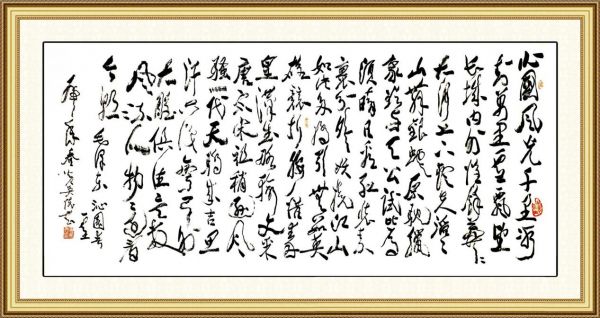 北國風光千里冰
封萬里雪飄望
長城内外惟餘莽々
大河上下頓失滔々
山舞銀蛇原馳蠟
象欲與天公試比高
須晴日看紅裝素
裹分外妖嬈江山
如此多嬌引無數英
雄競折腰惜秦
皇漢武略輸文采
唐宗宋祖稍遜風
騷一代天驕成吉思
汗只識彎弓射
大雕俱往矣數
風流人物還看
今朝 毛澤東 沁園春 雪